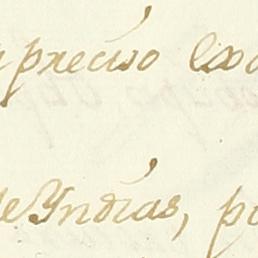 preciso exa
de Yndias, po